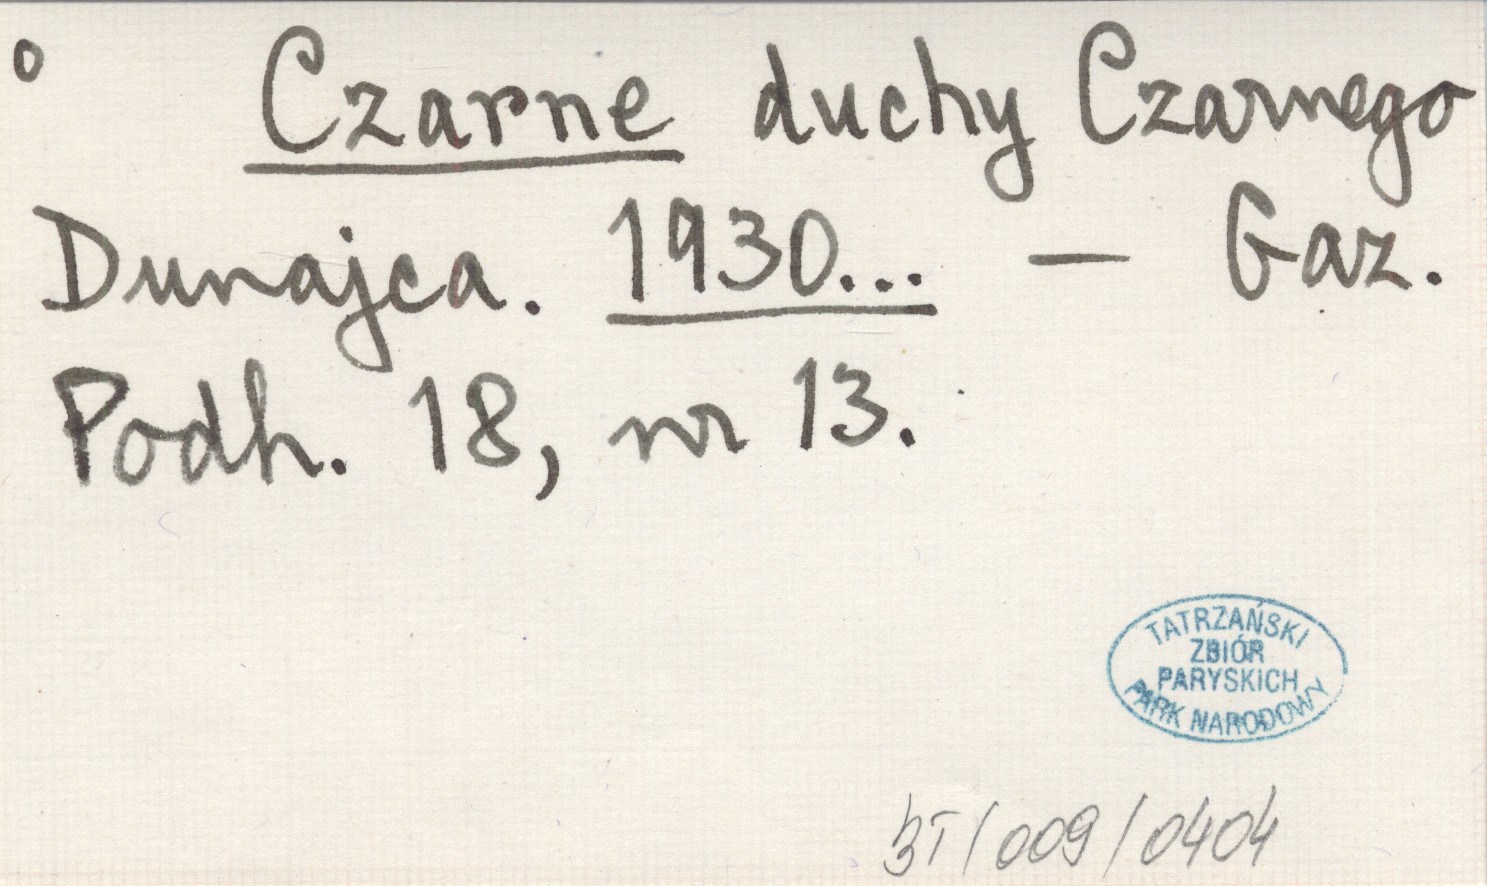 o Czarne duchy Czarnego
Dunajca. 1930... — Gaz.
Podh. 18, nr 13.
TATRZAŃSKI
ZBIÓR
PARYSKICH
PARK NARODOWY
BT/009/0404